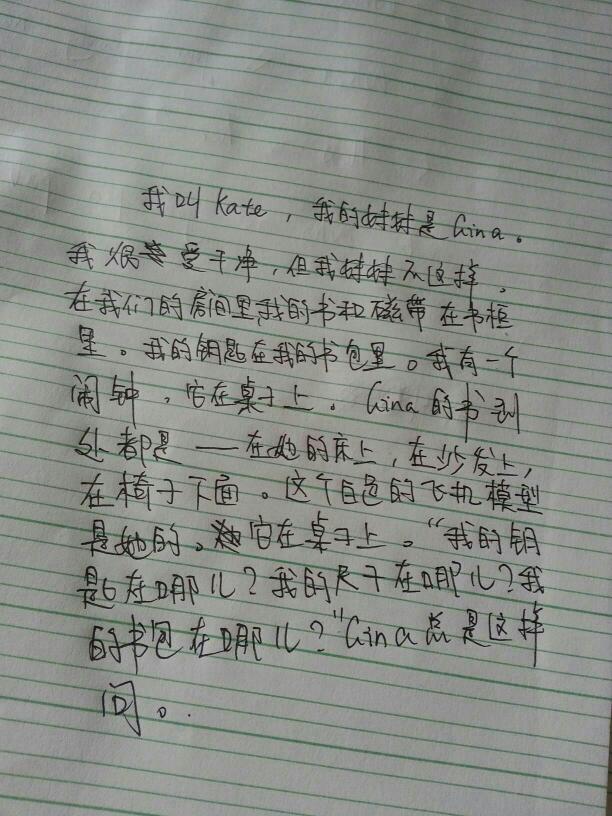 我叫Kate，我的妹妹是Gina。
我很爱干净，但我妹妹不这样。
在我们的房间里,我的书和磁带在书柜
里。我的钥匙在我的书包里。我有一个
闹钟，它在桌子上。Gina的书到
处都是——在她的床上，在沙发上，
在椅子下面。这个白色的飞机模型
是她的。它在桌子上。“我的钥
匙在哪儿？我的尺子在哪儿？我
的书包在哪儿？”Gina总是这样
问。